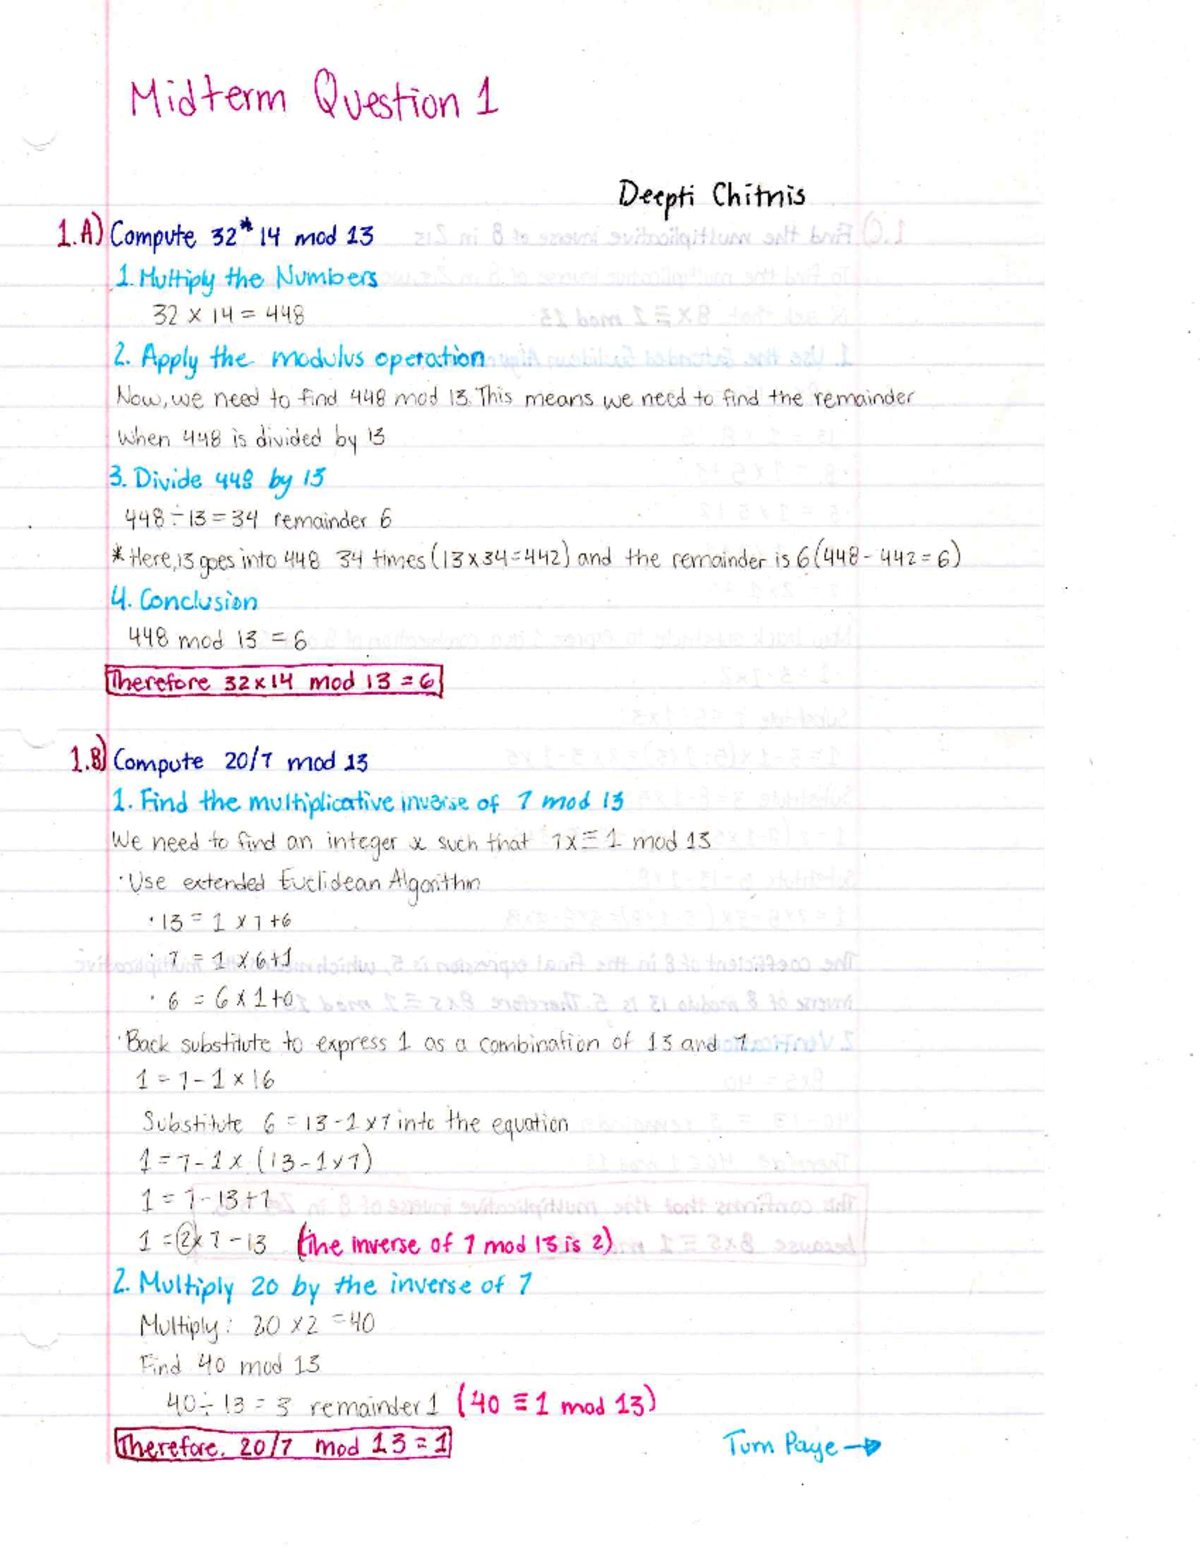 Midterm Question 1
Deepti Chitnis
1.A) Compute 32*14 mod 13
1. Multiply the Numbers
32 x 14 = 448
2. Apply the modulus operation
Now, we need to find 448 mod 13. This means we need to find the remainder
when 448 is divided by 13
3. Divide 448 by 13
448 ÷ 13 = 34 remainder 6
* Here, 13 goes into 448 34 times (13x34=442) and the remainder is 6 (448 - 442 = 6)
4. Conclusion
448 mod 13 = 6
Therefore 32x14 mod 13 = 6
1.B) Compute 20/7 mod 13
1. Find the multiplicative inverse of 7 mod 13
We need to find an integer x such that 7x ≡ 1 mod 13
· Use extended Euclidean Algorithm
· 13 = 1 x 7+6
· 7 = 1 x 6+1
· 6 = 6 x 1+0
· Back substitute to express 1 as a combination of 13 and 7
1 = 7 - 1 x 16
Substitute 6 = 13 - 1 x 7 into the equation
1 = 7 - 1 x (13 - 1 x 7)
1 = 7 - 13 + 7
1 = 2 x 7 - 13 (the inverse of 7 mod 13 is 2)
2. Multiply 20 by the inverse of 7
Multiply: 20 x 2 = 40
Find 40 mod 13
40 ÷ 13 = 3 remainder 1 (40 ≡ 1 mod 13)
Therefore, 20/7 mod 13 = 1
Turn Page →